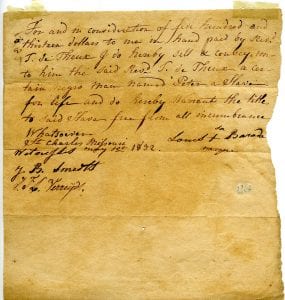 For and in consideration of five hundred and
thirteen dollars to me in hand paid by Revd
T. de Theux I do hereby Sell & convey un-
to him the said Revd T. de Theux a cer
tain negro man named Peter a Slave
for life and do hereby warrant the title
to said slave free from all incumbrance
Whatsoever
St Charles Missouri
may 1832
Witnesseth
Smedts